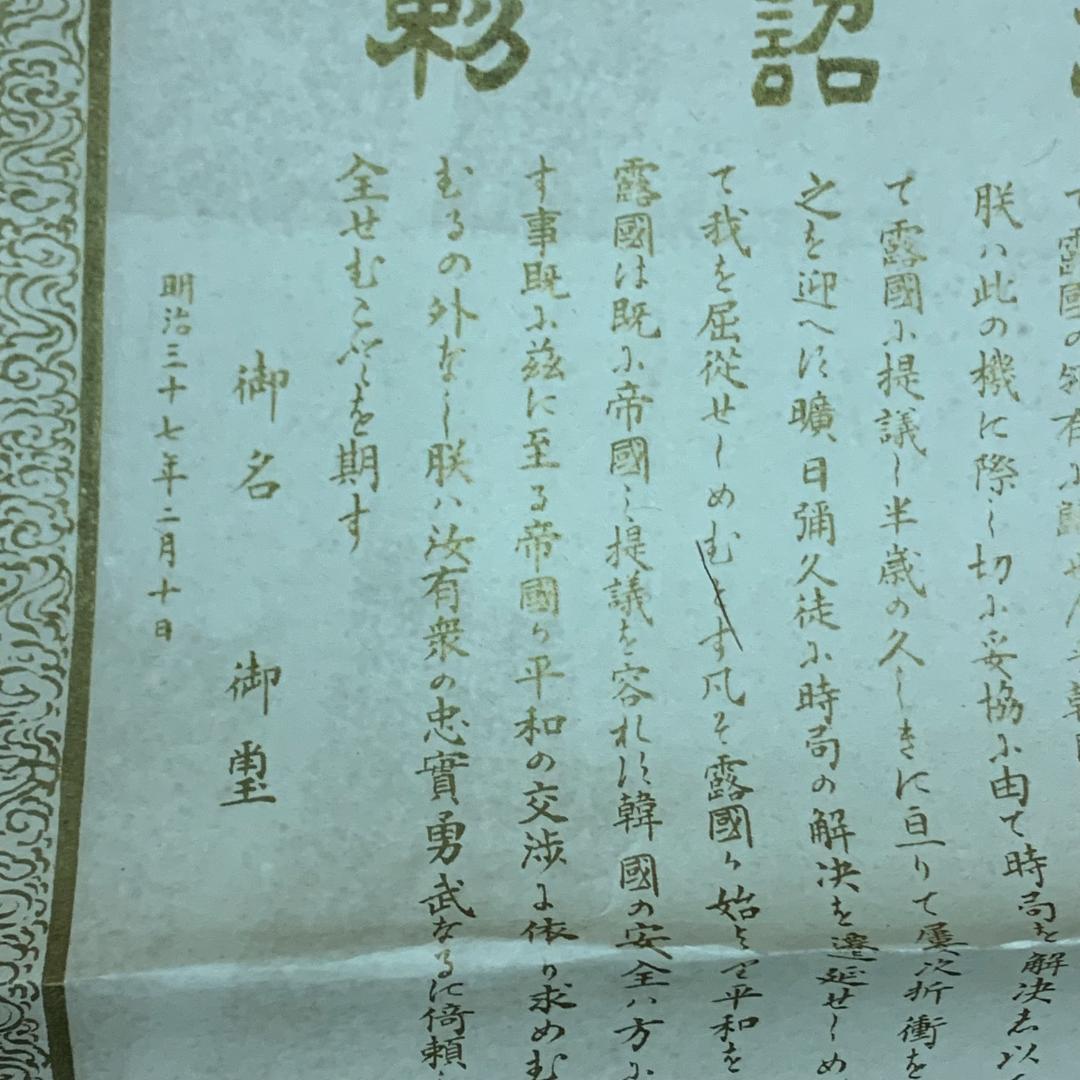 詔勅
朕ハ此の機に際し切に妥協に由て時局を解決志以
て露國に提議し半歳の久しきに亘りて屡次折衝を
之を迎へす曠日彌久徒に時局の解決を遷延せしめ
て我を屈従せしめむとす凡そ露國か始より平和を
露國は既に帝國之提議を容れす韓國の安全ハ方に
す事既に茲に至る帝國か平和の交渉に依り求めむ
むるの外なし朕ハ汝有衆の忠實勇武なるに倚頼し
全せむことを期す
御名 御璽
明治三十七年二月十日